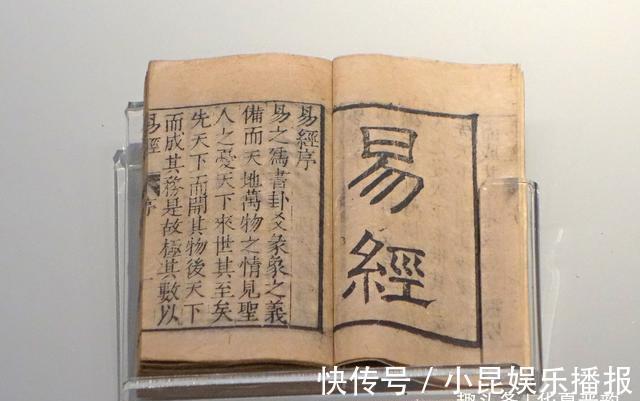 易經
易經序
易之爲書卦爻彖象之義
備而天地萬物之情見聖
人之憂天下來世其至矣
先天下而開其物後天下
而成其務是故極其數以
易經 序
快传号 / 小昆娱乐播报